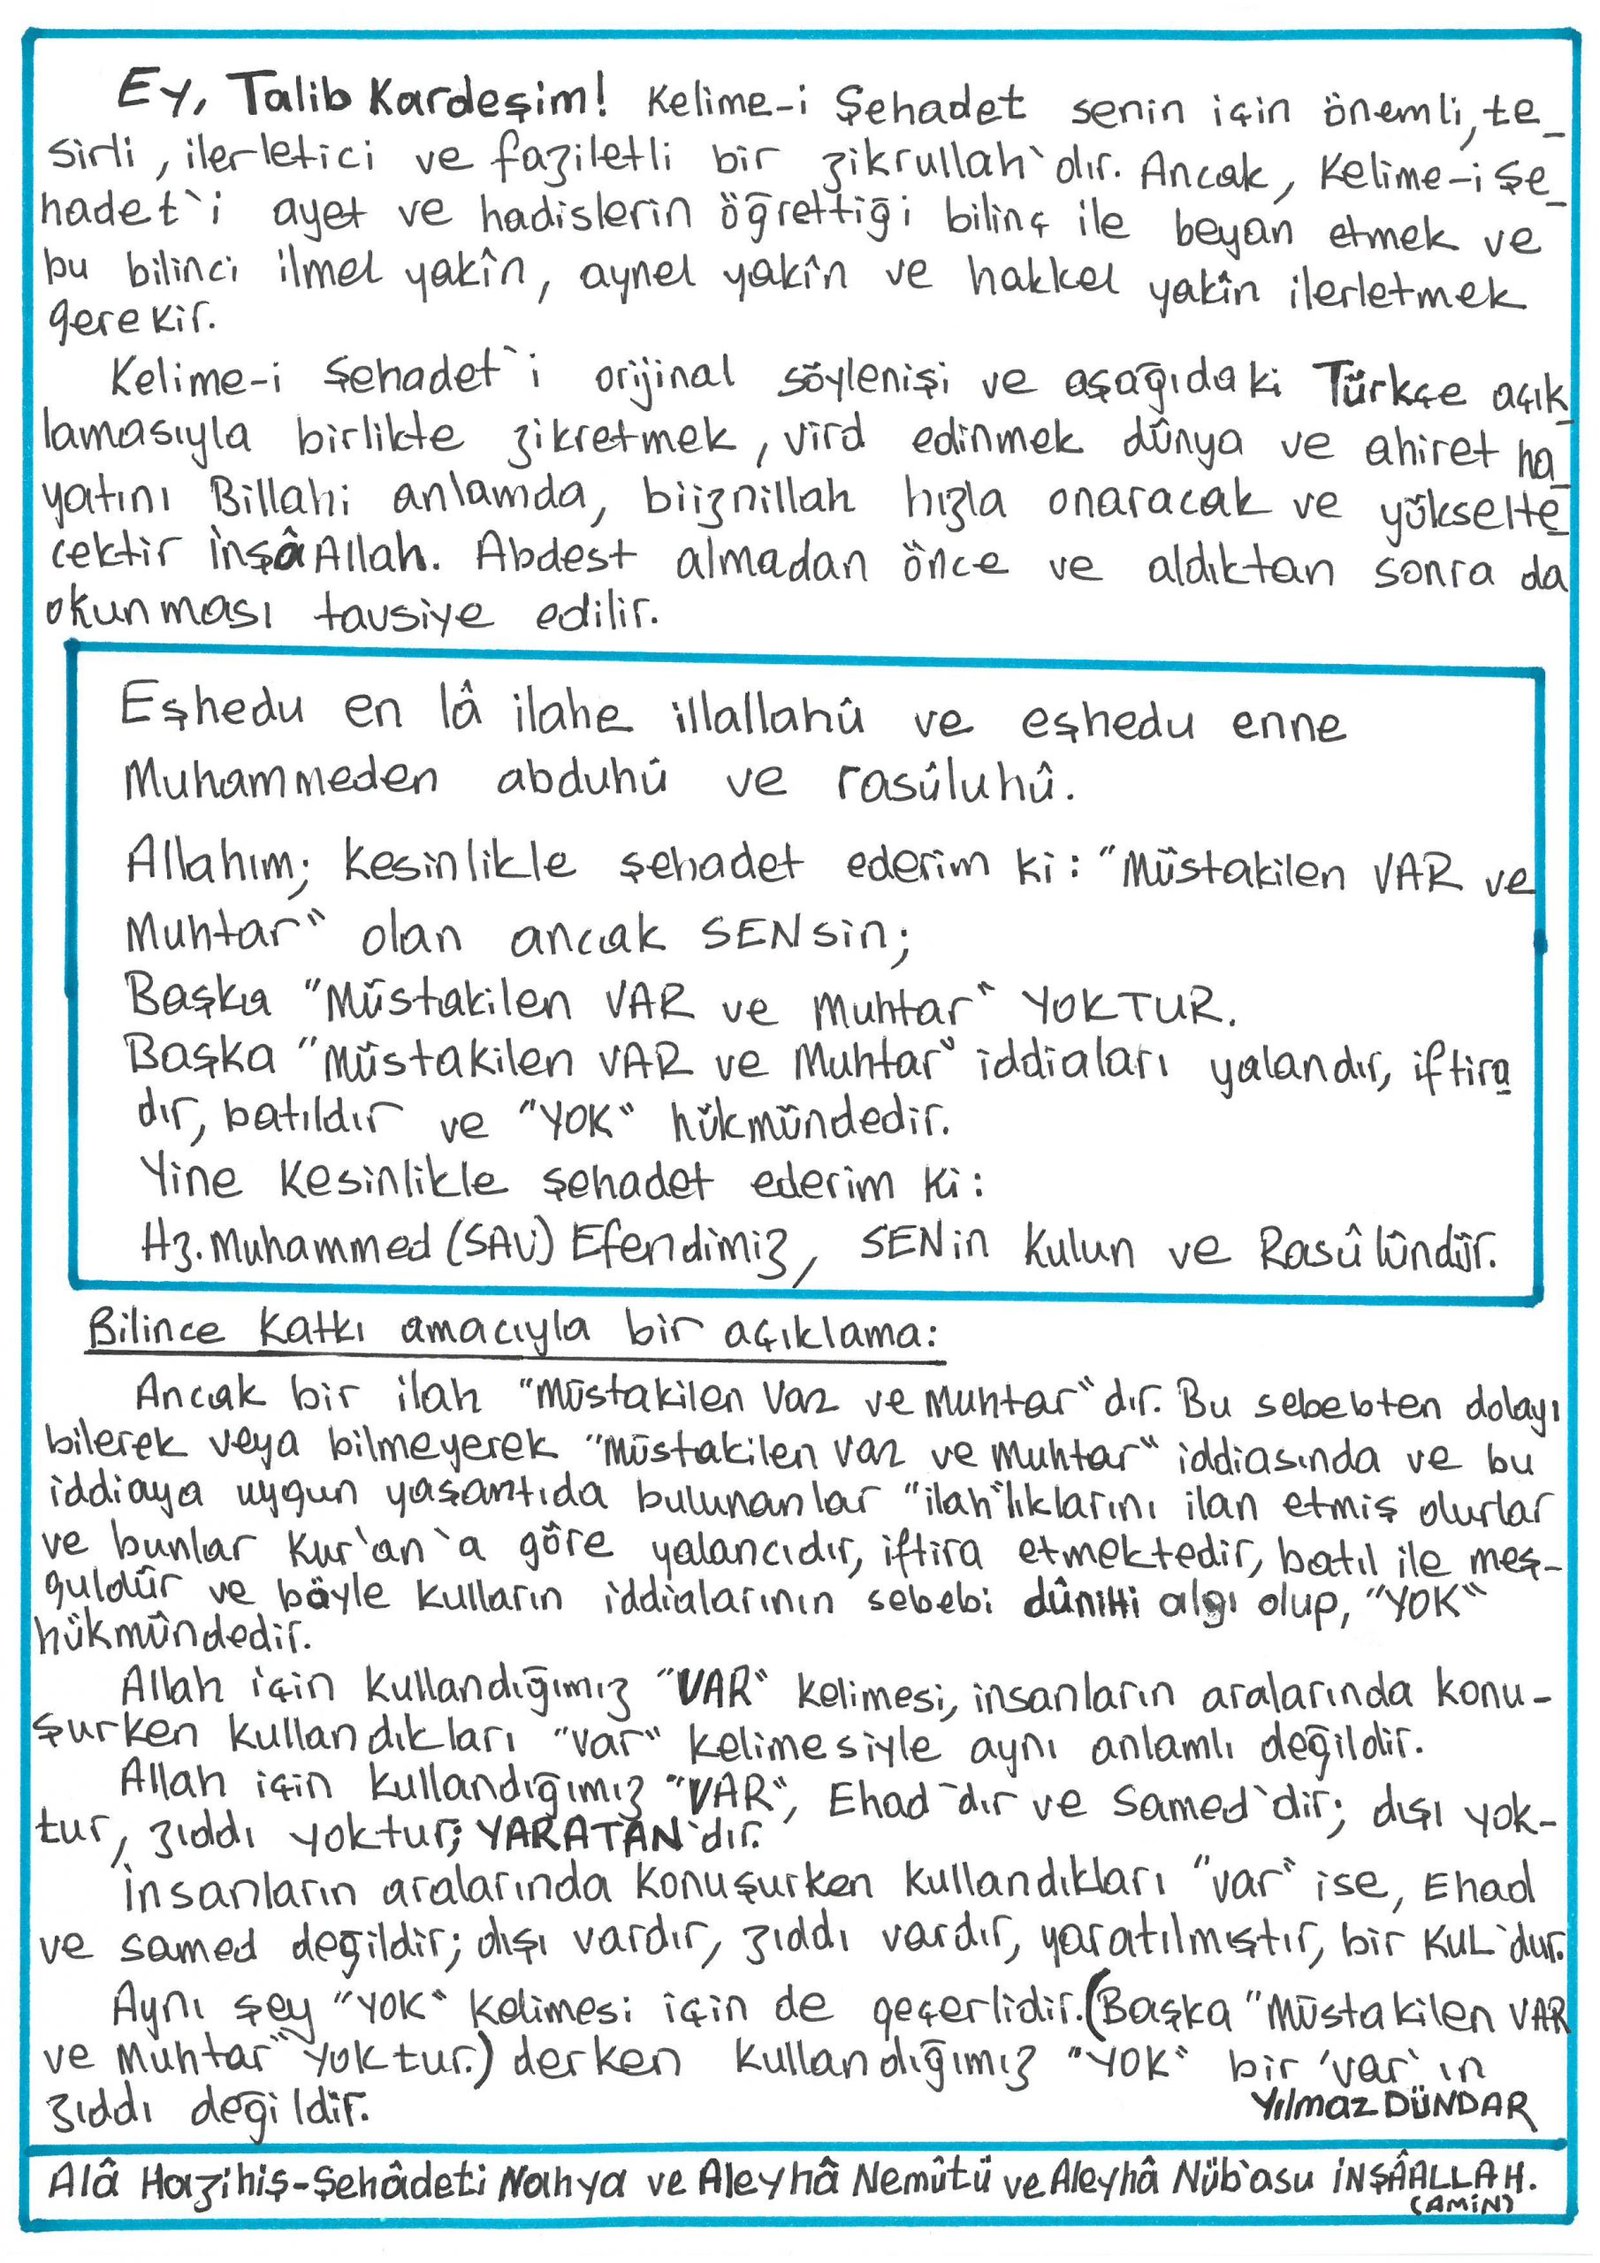 Ey, Talib Kardeşim! Kelime-i Şehadet senin için önemli, te_
sirli, ilerletici ve faziletli bir zikrullah`dır. Ancak, Kelime-i Şe_
hadet`i ayet ve hadislerin öğrettiği bilinç ile beyan etmek ve
bu bilinci ilmel yakîn, aynel yakîn ve hakkel yakîn ilerletmek
gerekir.
Kelime-i Şehadet`i orijinal söylenişi ve aşağıdaki Türkçe açık_
lamasıyla birlikte zikretmek, vird edinmek dünya ve ahiret ha_
yatını Billahi anlamda, biiznillah hızla onaracak ve yükselte_
cektir İnşâAllah. Abdest almadan önce ve aldıktan sonra da
okunması tavsiye edilir.
Eşhedu en lâ ilahe illallahû ve eşhedu enne
Muhammeden abduhû ve rasûluhû.
Allahım; kesinlikle şehadet ederim ki: "Müstakilen VAR ve
Muhtar" olan ancak SENsin;
Başka "Müstakilen VAR ve Muhtar" YOKTUR.
Başka "Müstakilen VAR ve Muhtar" iddiaları yalandır, iftira_
dır, batıldır ve "YOK" hükmündedir.
Yine kesinlikle şehadet ederim ki:
Hz. Muhammed (SAV) Efendimiz, SENin Kulun ve Rasûlündür.
Bilince Katkı amacıyla bir açıklama:
Ancak bir ilah "Müstakilen Var ve Muhtar"dır. Bu sebebten dolayı
bilerek veya bilmeyerek "Müstakilen Var ve Muhtar" iddiasında ve bu
iddiaya uygun yaşantıda bulunanlar "ilah"lıklarını ilan etmiş olurlar
ve bunlar Kur'an`a göre yalancıdır, iftira etmektedir, batıl ile meş-
guldür ve böyle kulların iddialarının sebebi dûnihi algı olup, "YOK"
hükmündedir.
Allah için kullandığımız "VAR" kelimesi, insanların aralarında konu-
şurken kullandıkları "var" kelimesiyle aynı anlamlı değildir.
Allah için kullandığımız "VAR", Ehad`dır ve Samed`dir; dışı yok-
tur, zıddı yoktur; YARATAN`dır.
İnsanların aralarında konuşurken kullandıkları "var" ise, Ehad
ve samed değildir; dışı vardır, zıddı vardır, yaratılmıştır, bir KUL`dur.
Aynı şey "YOK" kelimesi için de geçerlidir. (Başka "Müstakilen VAR
ve Muhtar" Yoktur.) derken kullandığımız "YOK" bir 'var'ın
zıddı değildir.
Yılmaz DÜNDAR
Alâ Hazihiş-Şehâdeti Nahya ve Aleyhâ Nemûtü ve Aleyhâ Nüb'asu İNŞÂALLAH.
(AMİN)